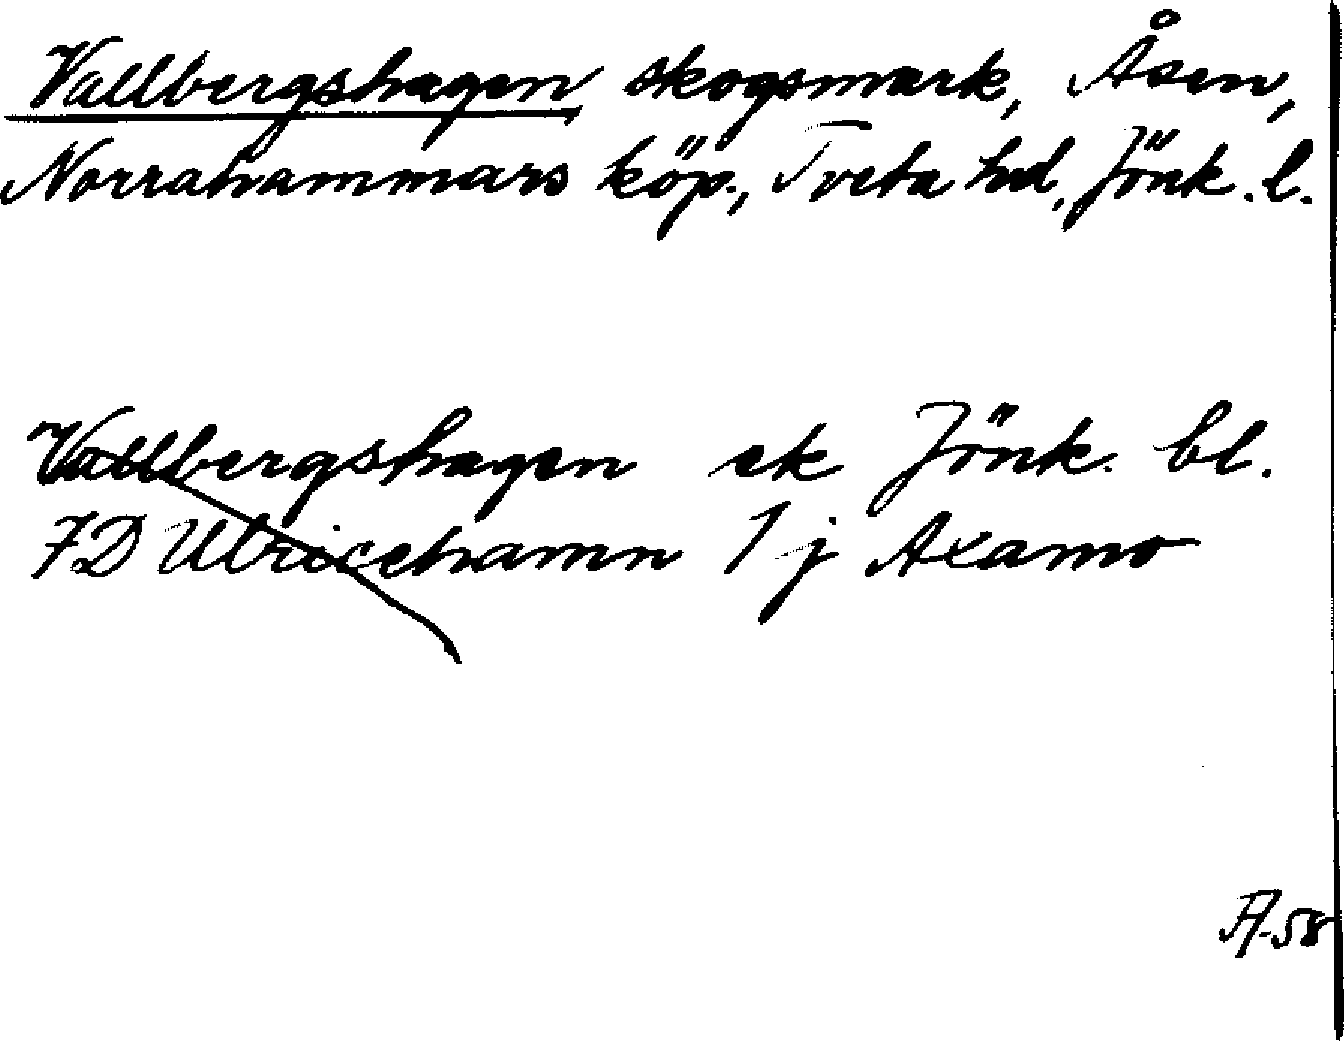 Vallbergshagen skogsmark, Åsen,
Norrahammars köp., Tveta hd, Jönk. l.
Vallbergshagen ek Jönk. bl.
7D Ulricehamn 1 j Axamo
Å-58